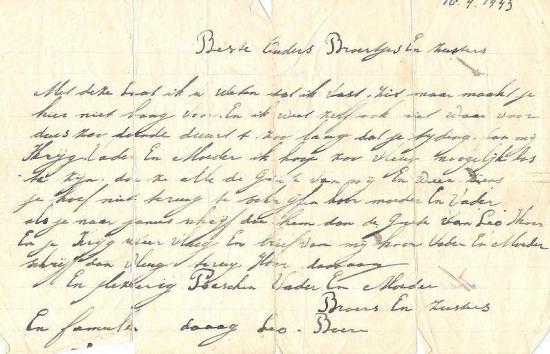 10.4.1943
Beste Ouders Broertjes En Zusters
Met deze laat ik u weten dat ik vast zit maar maakt je
hier niet bang voor. En ik weet zelf ook niet waar voor
dus hoe het duurt zoo lang dat je tijding van mij
Krijg Vader En Moeder ik hoop zoo vleug moogelijk los
te zijn. doe ze alle de Groete van mij En
je hoef niet terug te schrijfen hoor moeder En Vader
als je naar schrijf doe hem dan de Groete van Leo. Hoor
En je Krijg weer vleug Een brief van mij hoor Vader En Moeder
schrijf dan vleug terug Hoor daaaag
En Paschen Vader En Moeder
Broers En Zusters
En familie daaag Leo. Boere